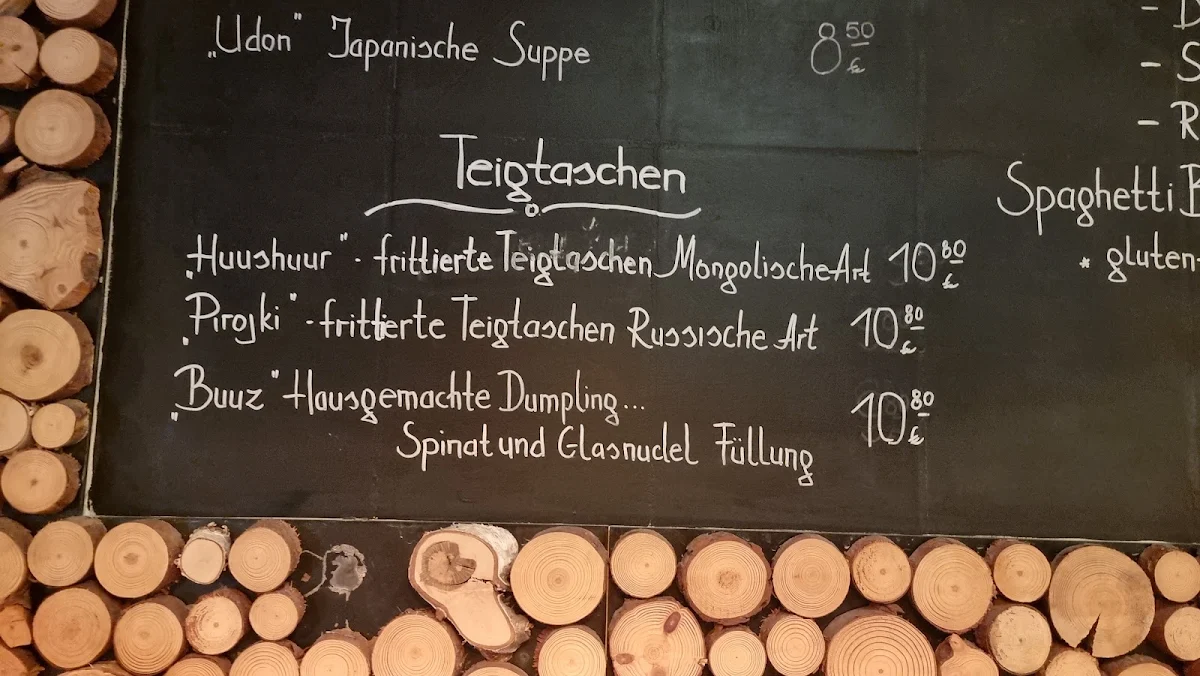 „Udon" Japanische Suppe 8 50 €
Teigtaschen
„Huushuur" - frittierte Teigtaschen Mongolische Art 10 80 €
„Pirojki" - frittierte Teigtaschen Russische Art 10 80 €
„Buuz" Hausgemachte Dumpling... 10 80 €
Spinat und Glasnudel Füllung
Spaghetti
* gluten-